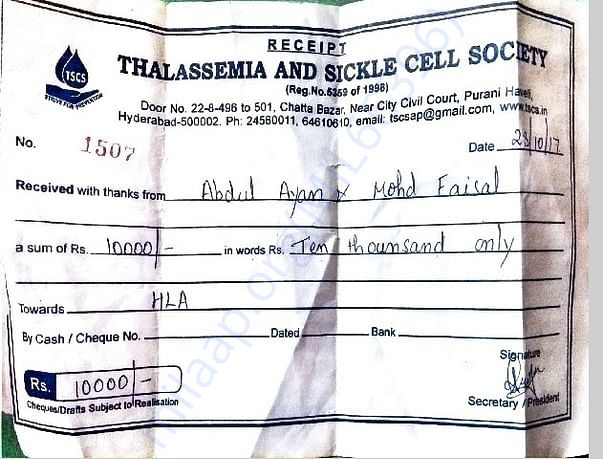 RECEIPT
TSCS
STRIVE FOR PREVENTION
THALASSEMIA AND SICKLE CELL SOCIETY
(Reg.No.5359 of 1998)
Door No. 22-8-496 to 501, Chatta Bazar, Near City Civil Court, Purani Haveli,
Hyderabad-500002. Ph: 24560011, 64610610, email: tscsap@gmail.com, www.tscs.in
No. 1507 Date 28/10/17
Received with thanks from Abdul Ayan & Mohd Faisal
a sum of Rs. 10000/- in words Rs. Ten thounsand only
Towards HLA
By Cash / Cheque No. Dated Bank
Signature
Rs. 10000/-
Cheques/Drafts Subject to Realisation
Secretary / President